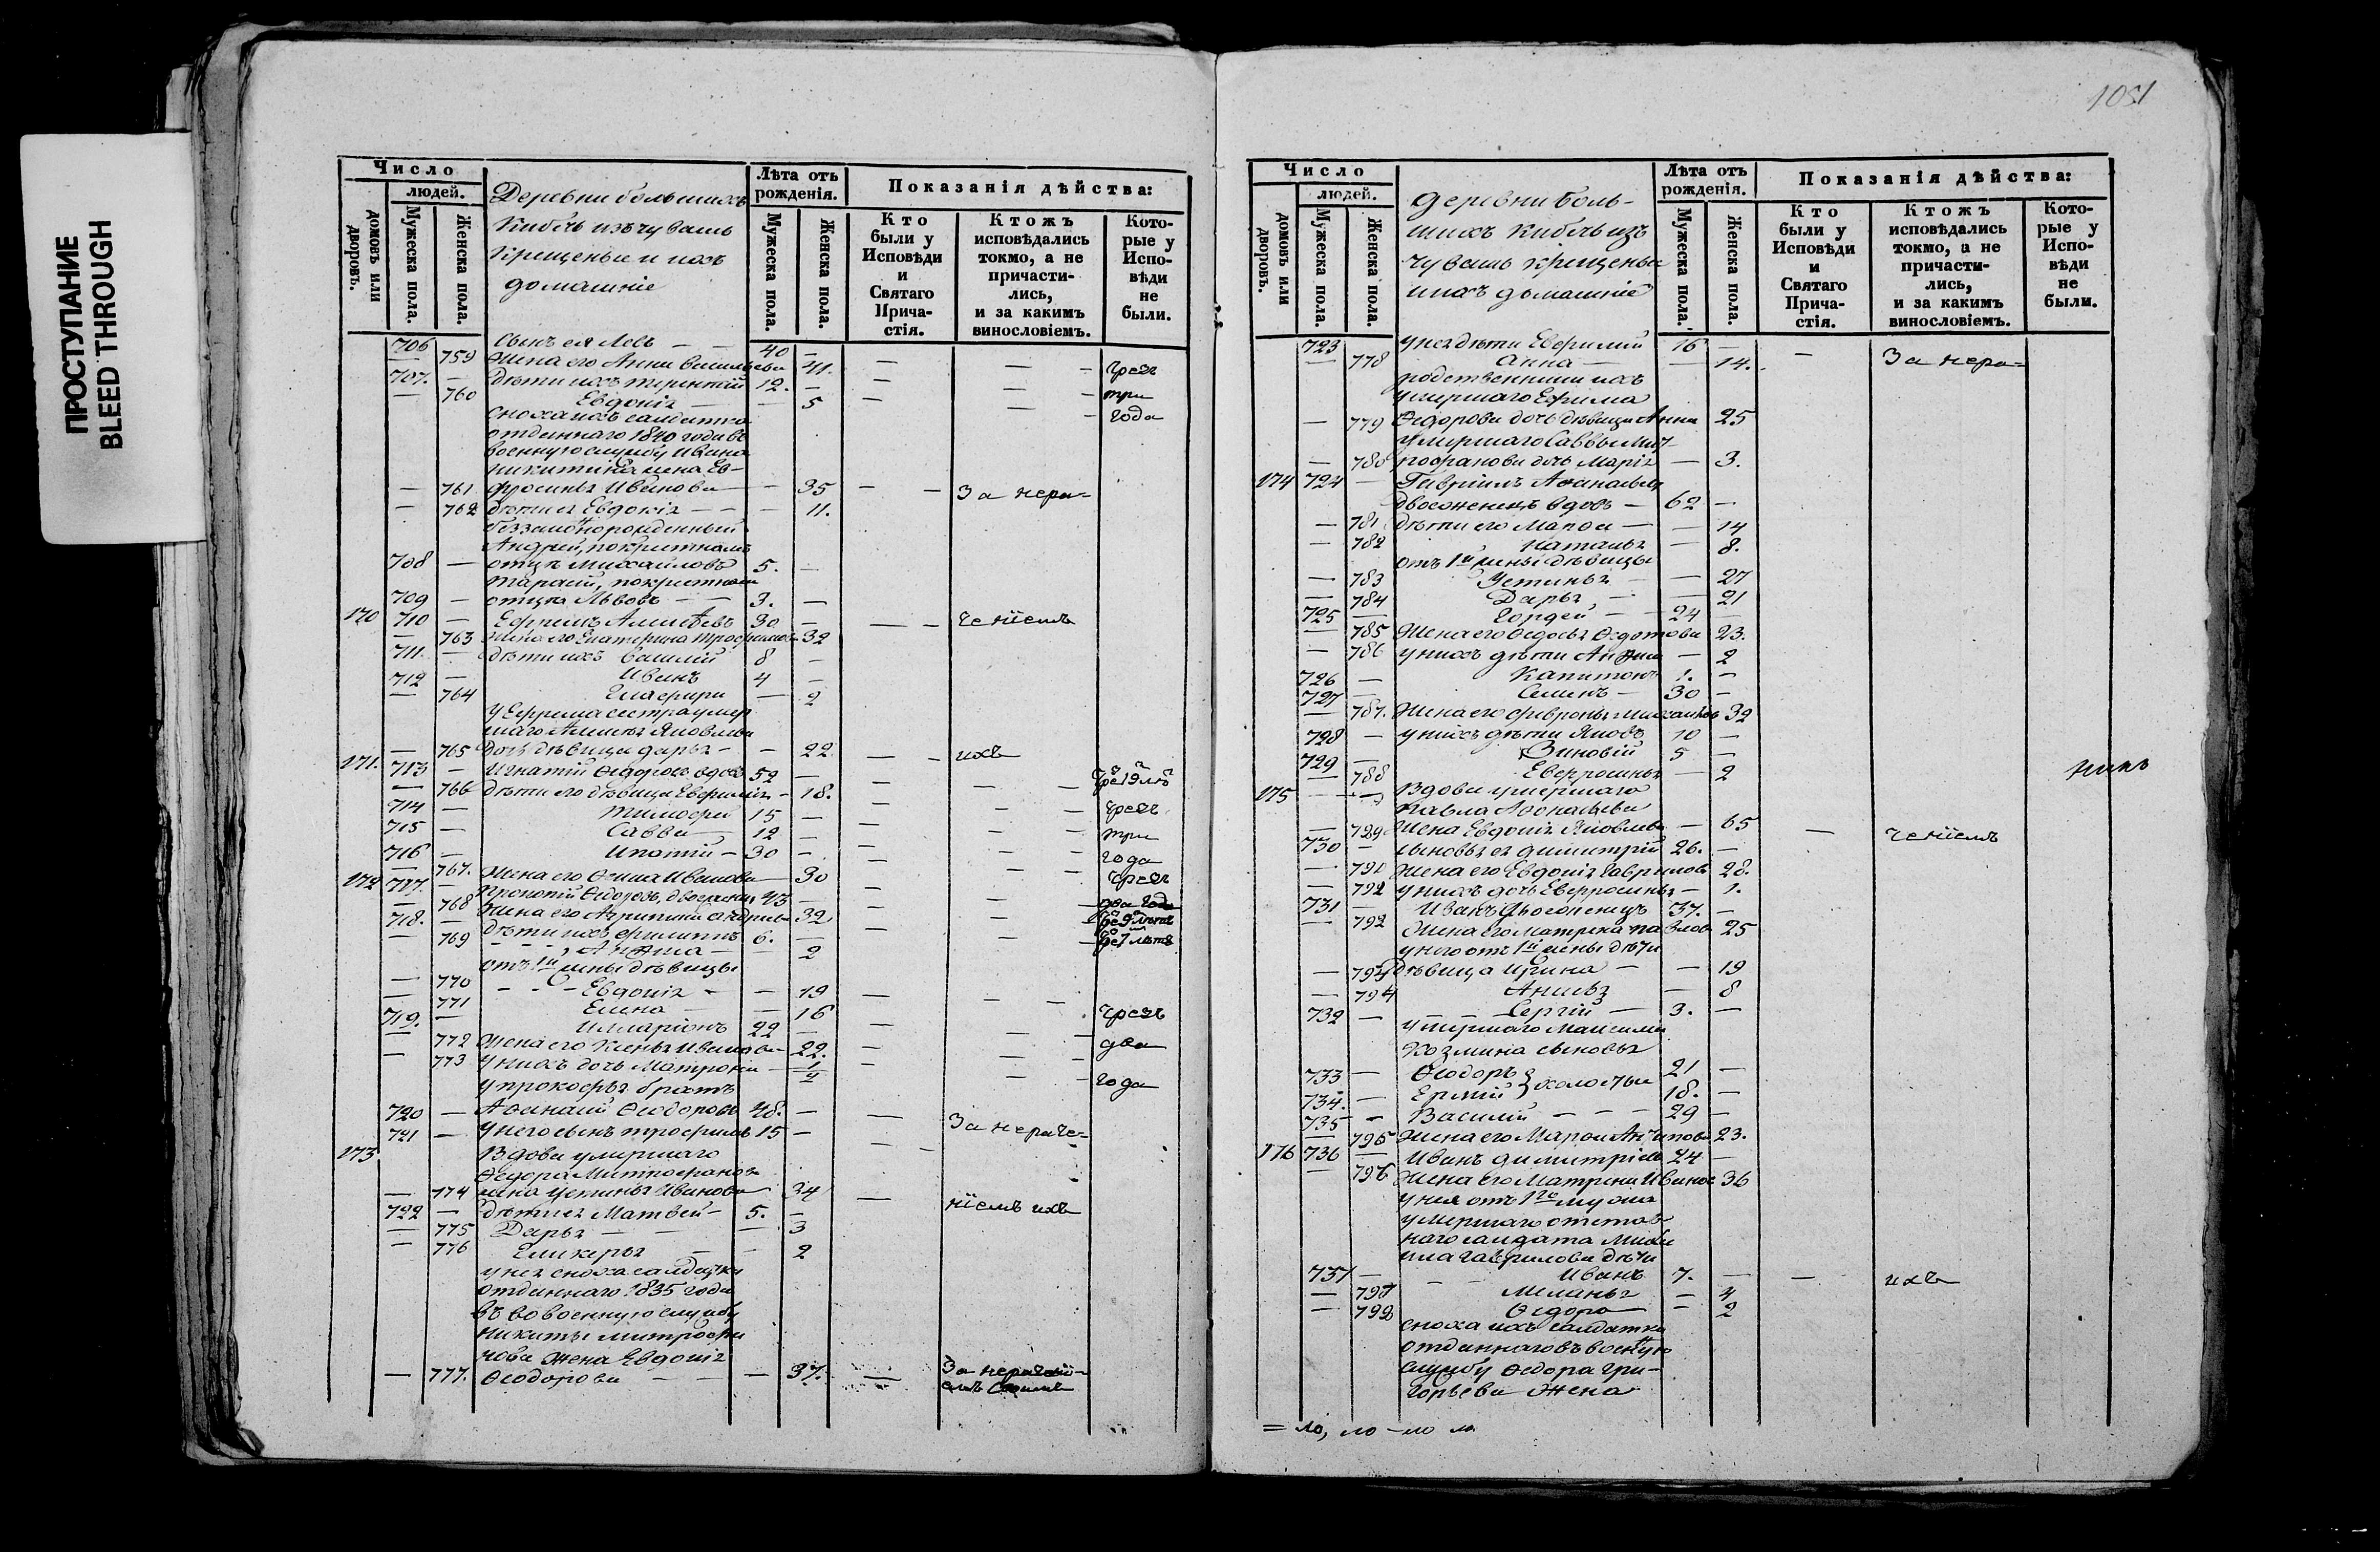 ПРОСТУПАНИЕ
BLEED THROUGH
Число
людей.
домовъ или дворовъ.
Мужеска пола.
Женска пола.
Деревни большихъ
Кибечь изъ чувашъ
Крещеные и ихъ
домашніе
Лѣта отъ рожденія.
Мужеска пола.
Женска пола.
Показанія дѣйства:
Кто были у Исповѣди и Святаго Прича-стія.
Ктожъ исповѣдались токмо, а не причасти-лись, и за какимъ винословіемъ.
Кото-рые у Испо-вѣди не были.
706 — Сынъ ея Левъ — — 40 —
— 759 Жена его Анна Васильева 41. — — — чрезъ
707. — дѣти ихъ Терентій 12. — —
— 760 Евдокія — — 5 — — — три
Сноха ихъ салдатка — — года
отданнаго 1840 года въ
военную службу Ивана
Никитина жена Ев-
— 761 фросинья Иванова — — 35 — — За нера-
— 762 дѣти ея Евдокія — — — 11.
беззаконорожденный
Андрей, по крестномъ
708 — отцѣ Михайловъ 5. —
Тарасій, по крестном
709 — отцѣ Львовъ — — 3. —
170 710 — Ефремъ Алексѣевъ 30 — — — ченіемъ
— 763 жена его Екатерина Трофимова 32
711. — дѣти ихъ Василій 8 —
712 — Иванъ 4 —
— 764 Глафира — 2
у Ефрема сестра умер
шаго Алексѣя Яковлева
— 765 дочь дѣвица Дарья — — 22. — — ихъ
171. 713 — Игнатій Ѳедоровъ вдовъ 52 —
— 766 дѣти его дѣвица Евфимія — 18.
714 — Тимофей 15 — — — — чрезъ
715 — Савва — 12 — — — — три
716 — Ипатій — 30 — — — — года
— 767. Жена его Ѳекла Иванова — 30 — — — чрезъ
172 717. — Прокопій Ѳедоровъ, двоеженец 43 —
— 768 Жена его Агрипина Андреева 32 — — — два года
718. — дѣти ихъ Филиппъ 6. —
— 769 — — Анна — — 2
отъ 1й жены дѣвицы
— 770 — — Евдокія — — 19 — — —
— 771 Елена — — 16 чрезъ
719. — Илларіонъ 22 — —
— 772 Жена его Ксенья Иванова — 22. — — два
— 773 у нихъ дочь Матрона — 1/2 — —
у Прокофья братъ — — года
720 — Аѳанасій Ѳеодоровъ 48. — —
721 — у него сынъ Трофимъ 15 — — За нераче-
173 Вдова умершаго — —
Ѳедора Митрофанова
— 774 жена Устинья Иванова — 34 — ніемъ ихъ
722 — дѣти ея Матвей — 5. —
— 775 Дарья — — — 3
— 776 Гликерья — — 2
у нея сноха салдатка
отданнаго 1835 года
въ военную службу
Никиты Митрофа
нова жена Евдокія
— 777. Ѳеодорова — — — 37. — За нераченіемъ
1051
Число
людей.
домовъ или дворовъ.
Мужеска пола.
Женска пола.
деревни Боль-
шихъ Кибечь изъ
чувашъ крещеные
и ихъ домашніе
Лѣта отъ рожденія.
Мужеска пола.
Женска пола.
Показанія дѣйства:
Кто были у Исповѣди и Святаго Прича-стія.
Ктожъ исповѣдались токмо, а не причасти-лись, и за какимъ винословіемъ.
Кото-рые у Испо-вѣди не были.
723 у нея дѣти Евфимій 16 —
— 778 Анна — — 14. — За нера-
родственники ихъ
умершаго Ефима
— 779 Ѳедорова дочь дѣвица Анна 25
умершаго Саввы Мит-
— 780 рофанова дочь Марія — 3.
174 724 — Гавріилъ Аѳанасьевъ
двоеженецъ вдовъ — 62 —
— 781 дѣти его Марѳа — — 14
— 782 Наталья — 8.
отъ 1й жены дѣвицы
— 783 Устинья — — 27
— 784 Дарья — — 21
725 — Гордей — — 24 —
— 785 Жена его Ѳедосья Ѳедотова 23.
— 786 у нихъ дѣти Анна — 2
726 — Капитонъ 1. —
727 — Семенъ — 30 —
— 787. Жена его Февронья Михайлова 32
728 — у нихъ дѣти Яковъ 10 —
729 — Зиновій 5 —
— 788 Евфросинья — 2
175 — — Вдова умершаго
Павла Аѳонасьева
— 729 жена Евдокія Яковлева — 65 — ченіемъ
730 — сыновья ея Димитрій 26. —
— 791 Жена его Евдокія Гаврилова 28.
— 792 у нихъ дочь Евфросинья — 1.
731 — Иванъ двоеженецъ 37. —
— 792 Жена его Матрена Павлова 25
у него отъ 1й жены дѣти
— 793 дѣвица Ирина — — 19
— 794 Анисья — 8
732 — — — Сергій — 3. —
умершаго Максима
Козмина сыновья
733 — Ѳеодоръ } холостые 21 —
734. — Ермій 18. —
735 — — Василій — — — 29 —
— 795 Жена его Марѳа Антипова 23.
176 736 — Иванъ Димитріевъ 24 —
— 796 Жена его Матрена Иванова 36
у нея отъ 1го мужа
умершаго отстав
наго салдата Миха
ила Гаврилова дѣти
737 — — — Иванъ 7. — — ихъ
— 797 Меланья — 4
— 798 Ѳедора — 2
сноха ихъ салдатка
отданнаго въ военную
службу Ѳедора Гри-
горьева жена